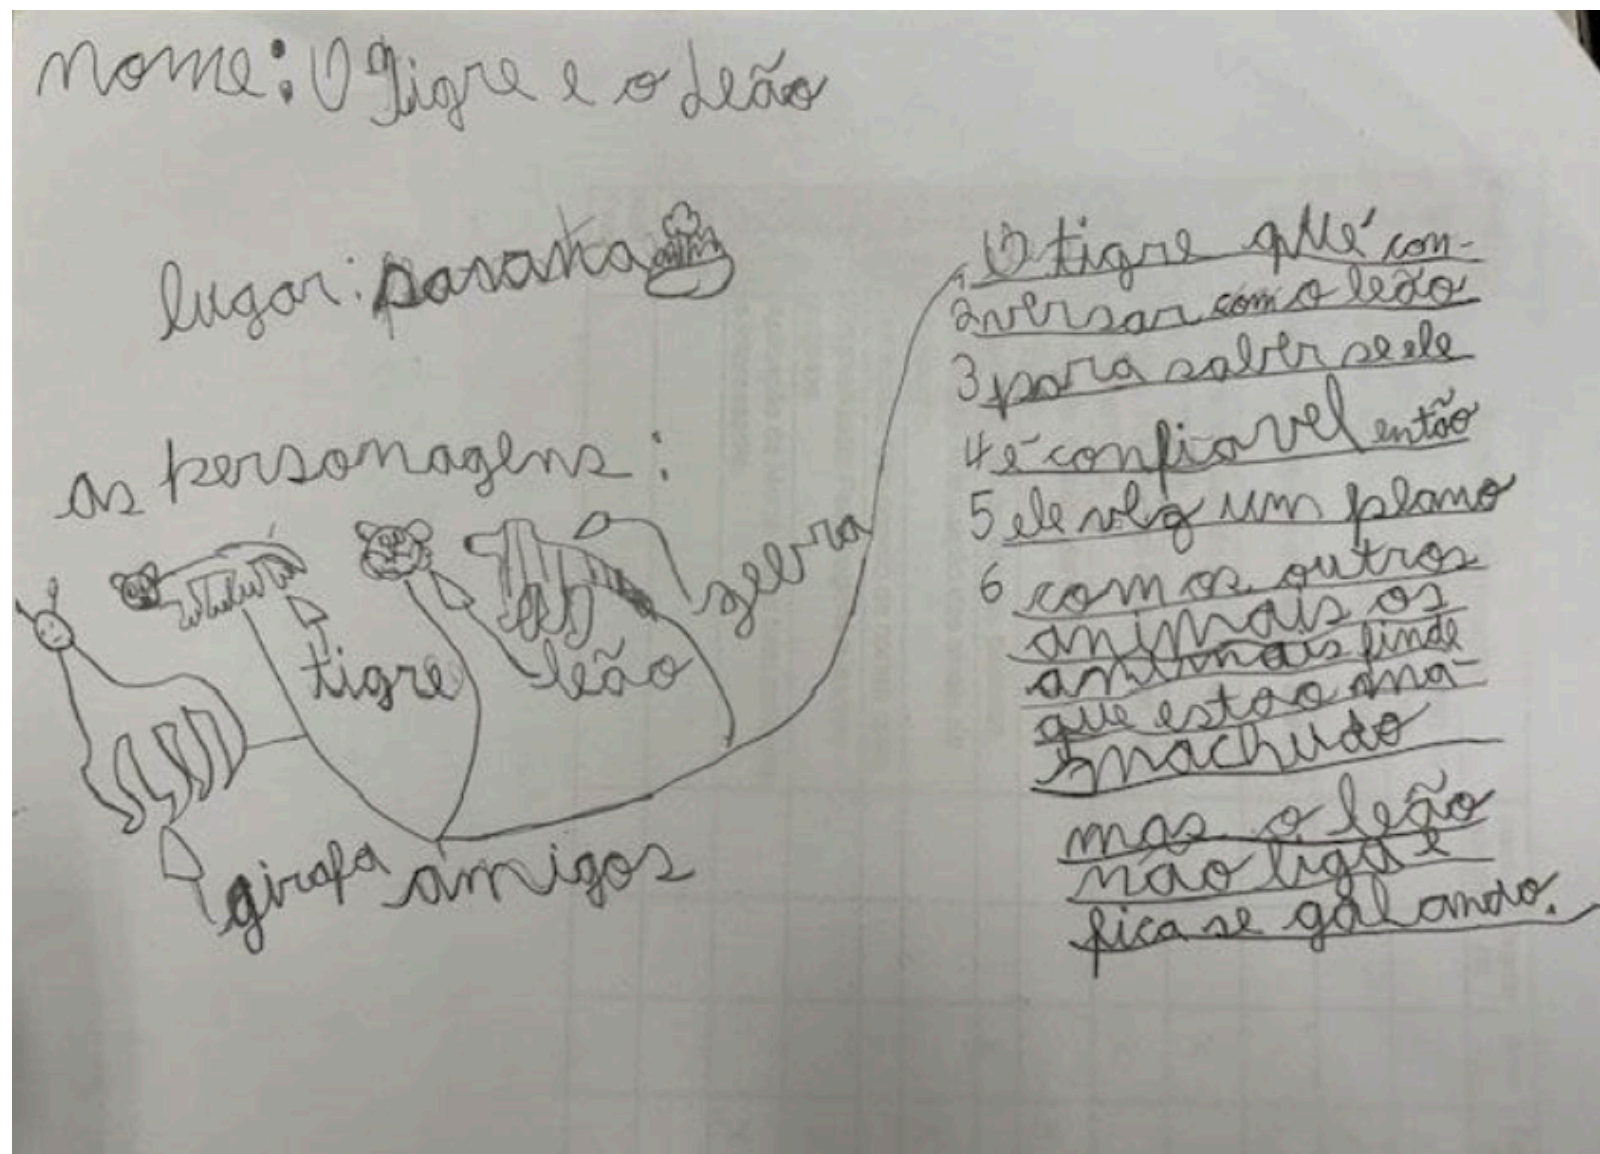 nome: O Tigre e o Leão
lugar:
as personagens:
tigre
leão
zebra
girafa
amigos
1 O tigre qué con-
2 versar com o leão
3 para saber se ele
4 é confiavel então
5 ele um plano
6 com os outros
animais os
animais finde
que estão ma-
machudo
mas o leão
não liga e
fica se gabando.